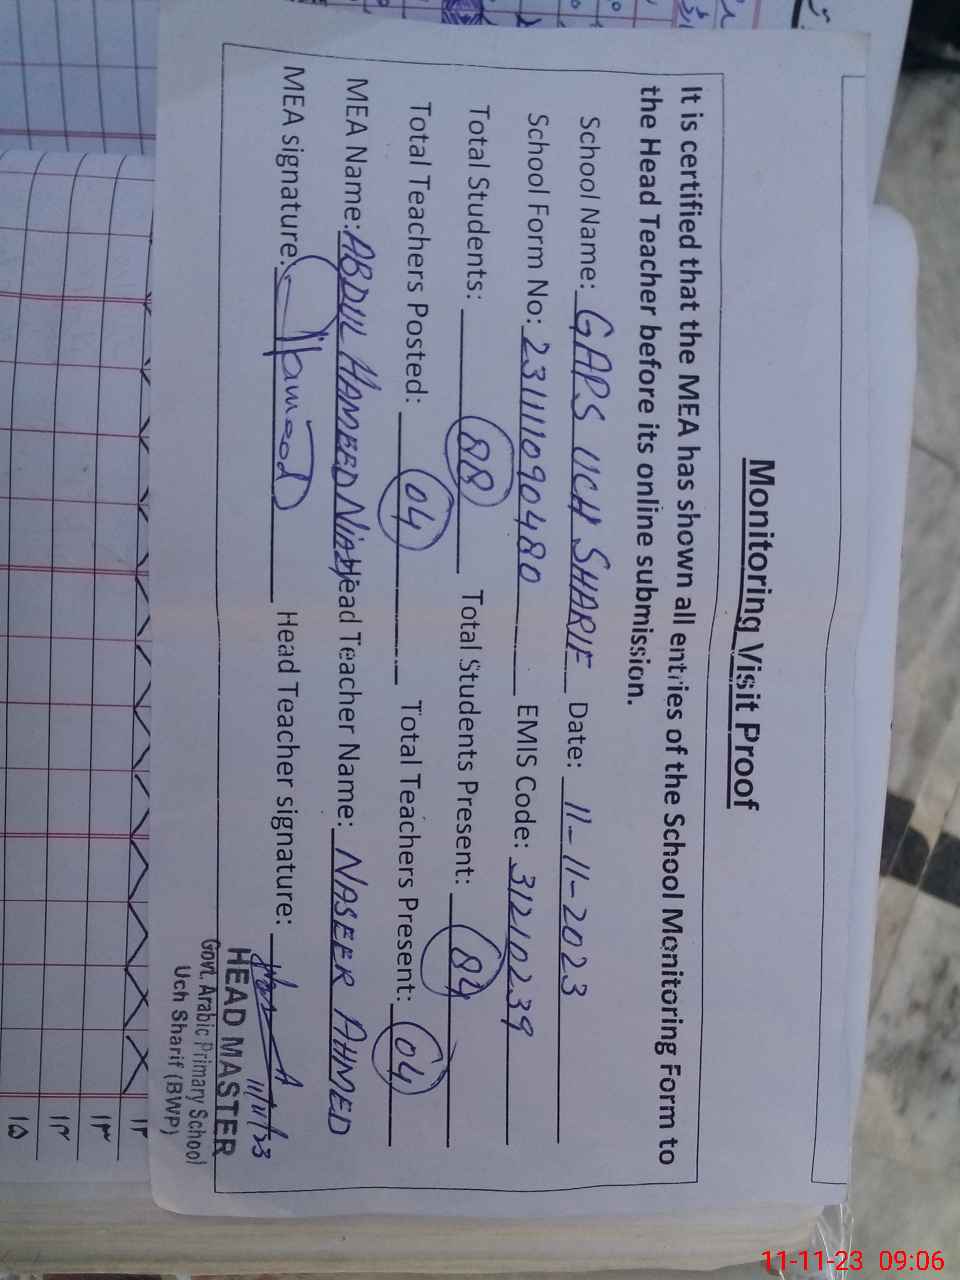 Monitoring Visit Proof
It is certified that the MEA has shown all entries of the School Monitoring Form to
the Head Teacher before its online submission.
School Name: GAPS UCH SHARIF Date: 11-11-2023
School Form No: 23111090480 EMIS Code: 31210239
Total Students: 88 Total Students Present: 84
Total Teachers Posted: 04 Total Teachers Present: 04
MEA Name: ABDUL HAMEED NIAZ Head Teacher Name: NASEER AHMED
MEA signature: Head Teacher signature:
11/11/23
HEAD MASTER
Govt. Arabic Primary School
Uch Sharif (BWP)
۱۲
۱۳
۱۴
۱۵
11-11-23 09:06